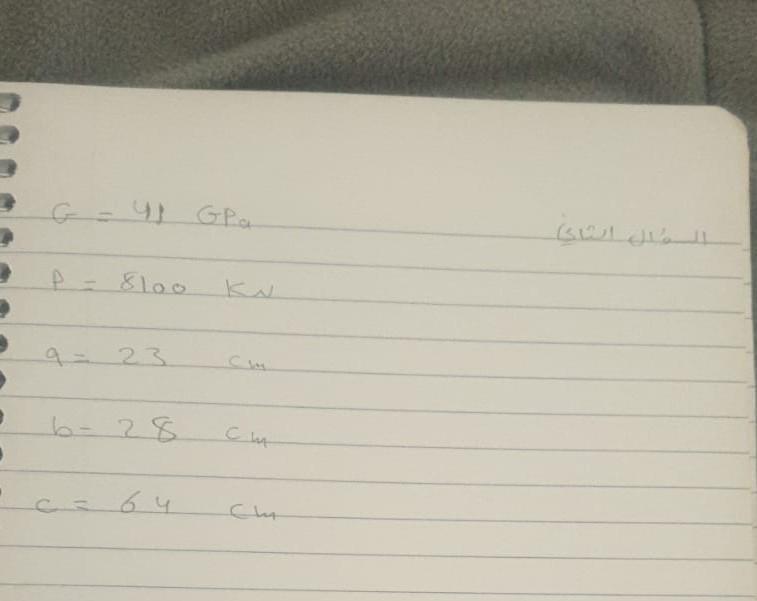 السؤال الثاني
G = 41 GPa
P = 8100 KN
a = 23 cm
b = 28 cm
c = 64 cm